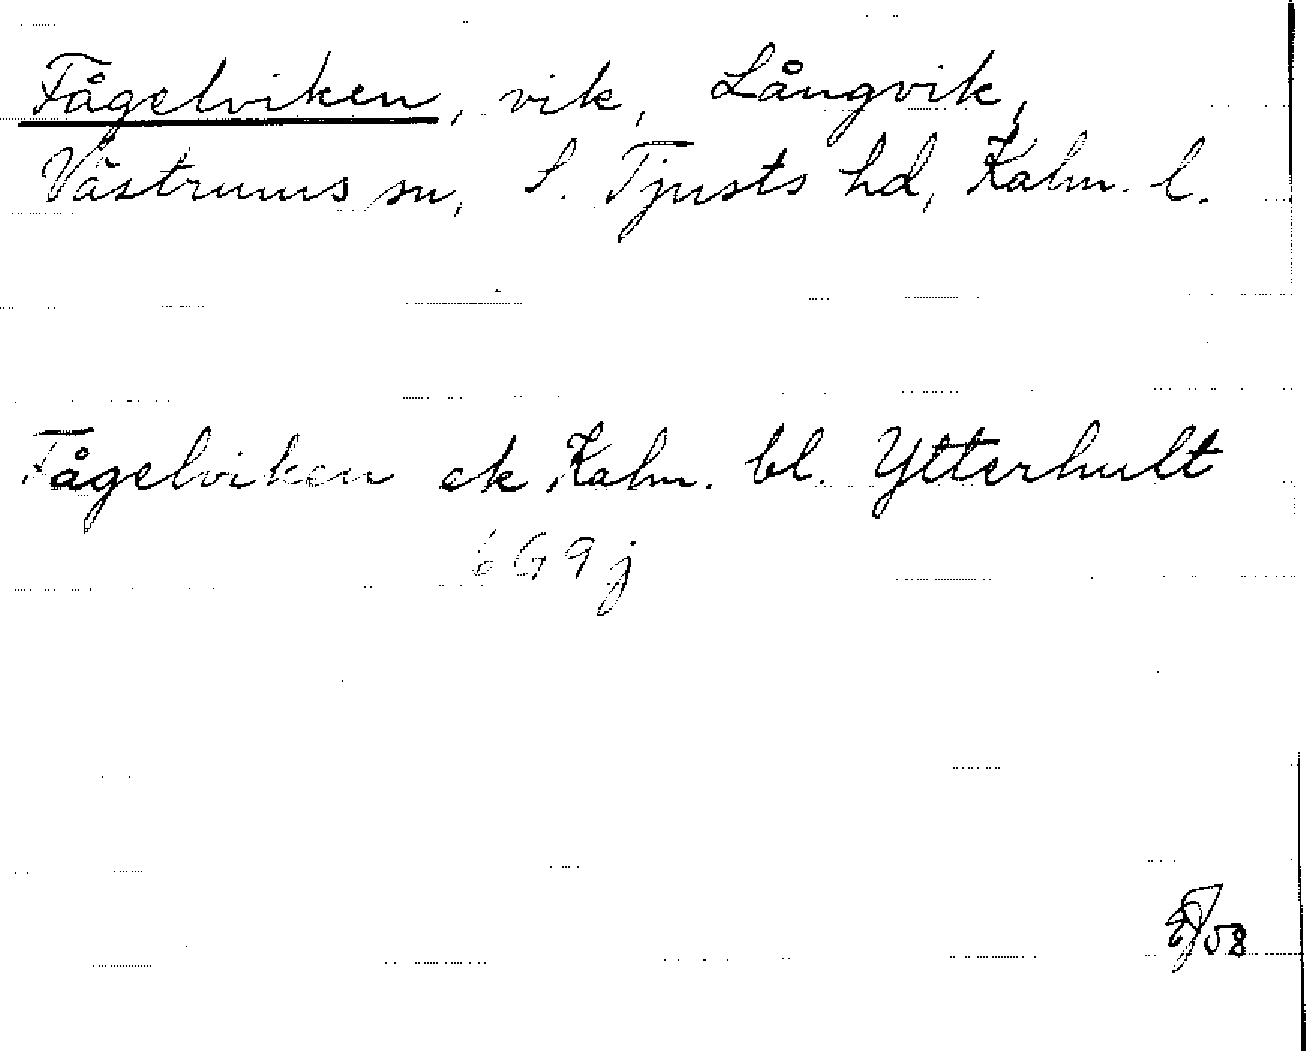 Fågelviken, vik, Långvik,
Västrums sn, S. Tjusts hd, Kalm. l.
Fågelviken ek Kalm. bl. Ytterhult
6G9j
58